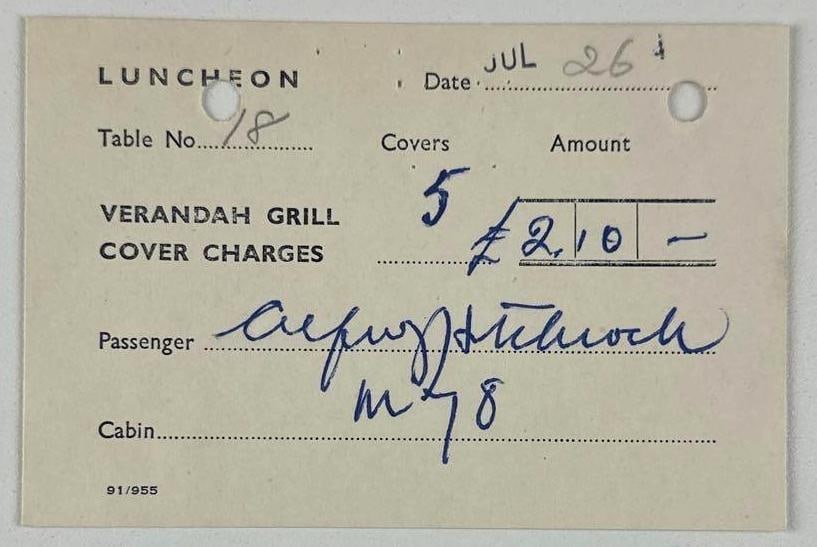 LUNCHEON Date JUL 26
Table No. 18 Covers Amount
5
VERANDAH GRILL
COVER CHARGES £2.10 -
Passenger Alfred Hitchcock
M 78
Cabin
91/955